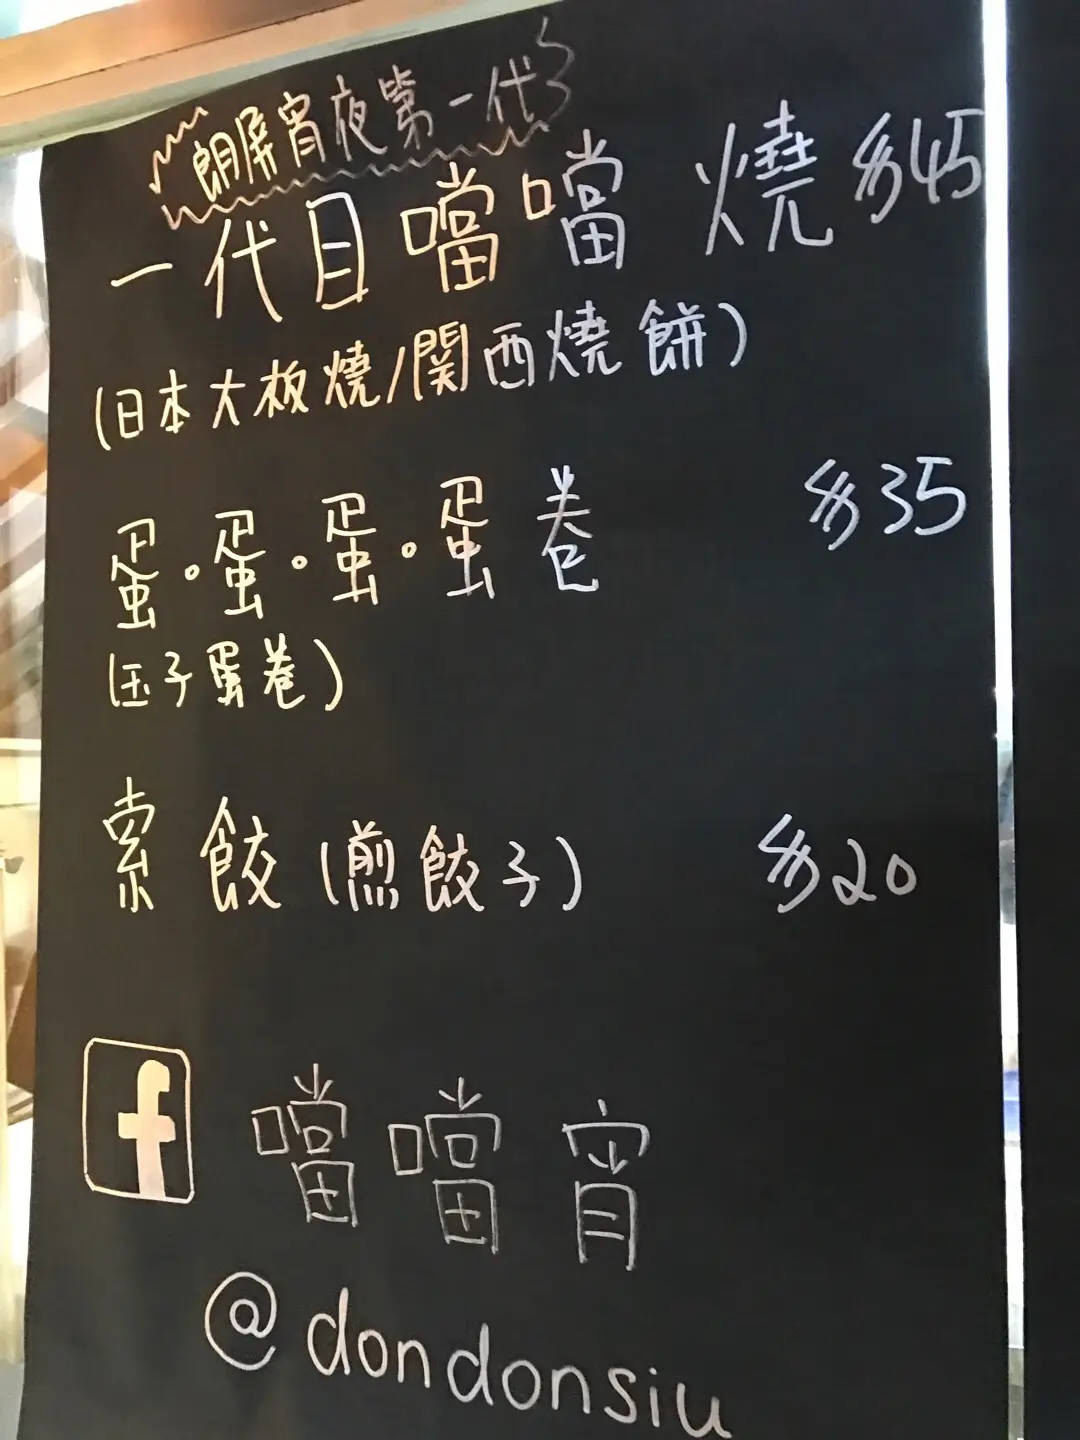 朗屏宵夜第一代
一代目噹噹燒 $45
(日本大板燒/関西燒餅)
蛋.蛋.蛋.蛋卷 $35
(玉子蛋卷)
索餃(煎餃子) $20
f 噹噹宵
@dondonsiu